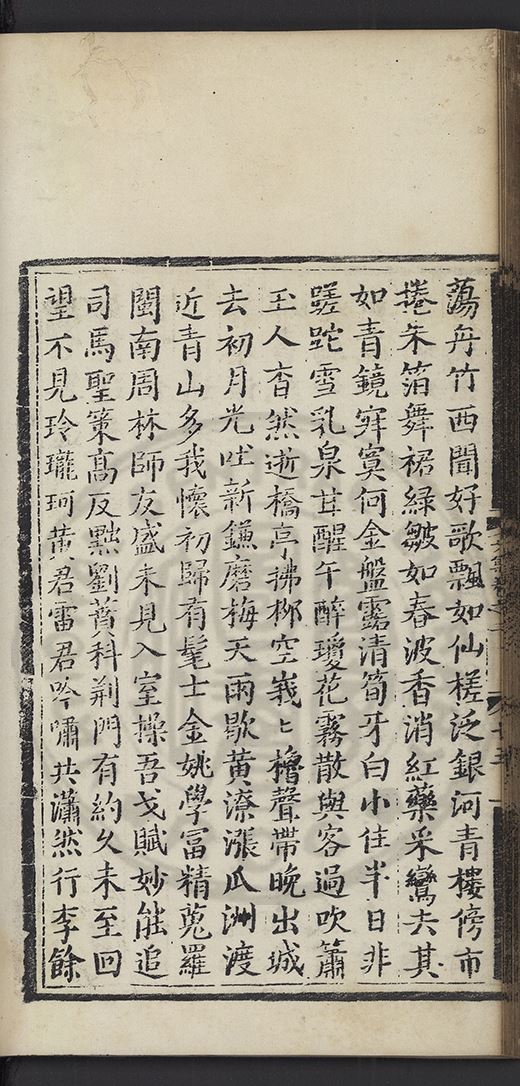 蕩舟竹西聞好歌飄如仙槎泛銀河青樓傍市
捲朱箔舞裙綠皺如春波香消紅藥采鸞去其
如青鏡寂寞何金盤露清筍牙白小住半日非
蹉跎雪乳泉甘醒午醉瓊花霧散與客過吹簫
玉人杳然逝橋亭拂柳空峩〻櫓聲帶晚出城
去初月光吐新鎌磨梅天雨歇黄潦漲瓜洲渡
近青山多我懷初歸有髦士金姚學冨精蒐羅
閩南周林師友盛未見入室操吾戈賦妙能追
司馬聖策髙反黜劉蕡科荆門有約久未至回
望不見玲瓏珂黄君雷君吟嘯共瀟然行李餘